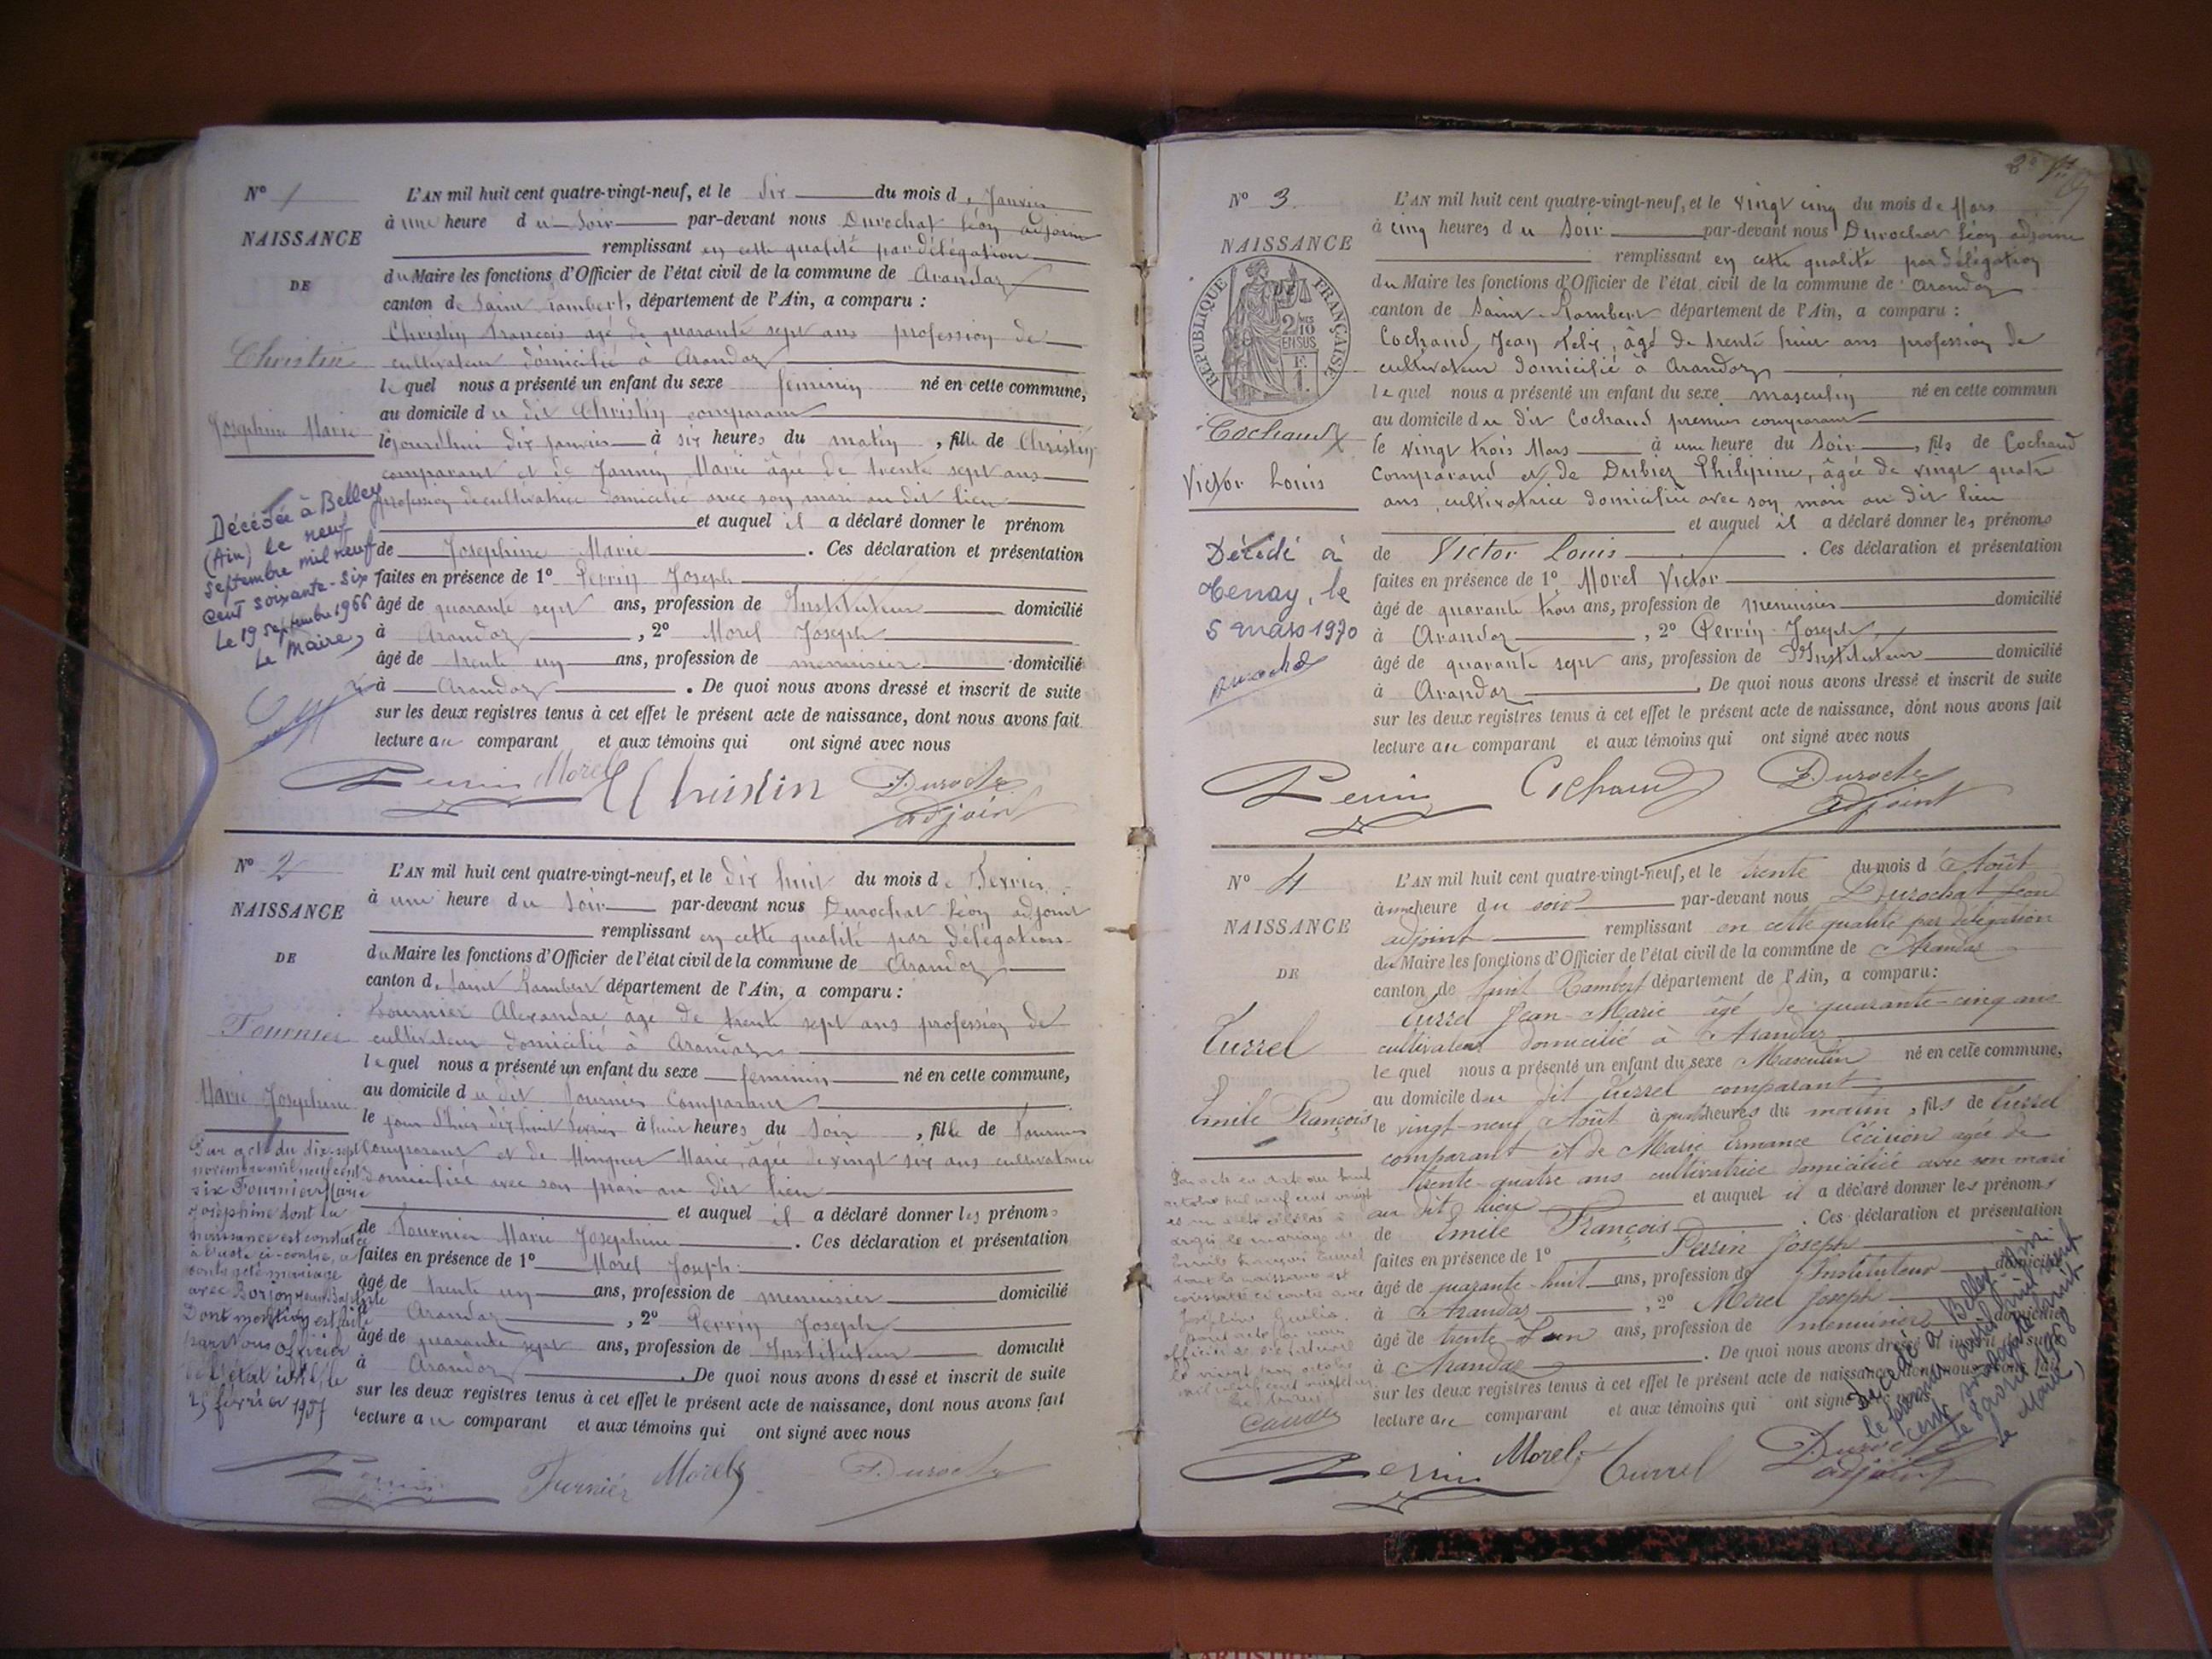 N° 1
NAISSANCE
DE
Christin
Josephine Marie
Décédée à Belley
(Ain) le neuf
septembre mil neuf
cent soixante-six
Le 19 septembre 1966
Le Maire,
L'AN mil huit cent quatre-vingt-neuf, et le dix du mois de Janvier
à une heure du Soir par-devant nous Durochat Léon adjoint
remplissant en cette qualité par délégation
du Maire les fonctions d'Officier de l'état civil de la commune de Arandaz
canton de Saint Rambert, département de l'Ain, a comparu :
Christin François agé de quarante sept ans profession de
cultivateur domicilié à Arandaz
lequel nous a présenté un enfant du sexe feminin né en cette commune,
au domicile du dit Christin comparant
le jourdhui dix janvier à six heures du matin, fille de Christin
comparant et de Jannin Marie âgée de trente sept ans
profession de cultivatrice domiciliée avec son mari au dit lieu
et auquel il a déclaré donner le prénom
de Josephine Marie. Ces déclaration et présentation
faites en présence de 1° Perrin Joseph
âgé de quarante sept ans, profession de Instituteur domicilié
à Arandaz, 2° Morel Joseph
âgé de trente un ans, profession de menuisier domicilié
à Arandaz. De quoi nous avons dressé et inscrit de suite
sur les deux registres tenus à cet effet le présent acte de naissance, dont nous avons fait
lecture au comparant et aux témoins qui ont signé avec nous
Perrin Morel Christin Durochat
adjoint
N° 2
NAISSANCE
DE
Fournier
Marie Josephine
Par acte du dix-sept
novembre mil neuf cent
six Fournier Marie
Joséphine dont la
naissance est constatée
à l'acte ci-contre, a
contracté mariage
avec Borjon Jean-Baptiste
Dont mention est faite
par nous officier
de l'état civil, le
25 février 1907
L'AN mil huit cent quatre-vingt-neuf, et le dix huit du mois de Fevrier
à une heure du Soir par-devant nous Durochat Léon adjoint
remplissant en cette qualité par délégation
du Maire les fonctions d'Officier de l'état civil de la commune de Arandaz
canton de Saint Rambert département de l'Ain, a comparu :
Fournier Alexandre âgé de trente sept ans profession de
cultivateur domicilié à Arandaz
lequel nous a présenté un enfant du sexe feminin né en cette commune,
au domicile du dit Fournier Comparant
le jour d'hui dix huit Fevrier à heures du Soir, fille de Fournier
Comparant et de Marie, âgée de vingt six ans cultivatrice
domiciliée avec son mari au dit lieu
et auquel il a déclaré donner les prénoms
de Fournier Marie Josephine. Ces déclaration et présentation
faites en présence de 1° Morel Joseph
âgé de trente un ans, profession de menuisier domicilié
à Arandaz, 2° Perrin Joseph
âgé de quarante sept ans, profession de Instituteur domicilié
à Arandaz. De quoi nous avons dressé et inscrit de suite
sur les deux registres tenus à cet effet le présent acte de naissance, dont nous avons fait
lecture au comparant et aux témoins qui ont signé avec nous
Perrin Furnier Morel Durochat
N° 3
NAISSANCE
DE
RÉPUBLIQUE FRANÇAISE
2/10 MES
EN SUS
F.
1.
Cochand
Victor Louis
Décédé à
Tenay, le
5 mars 1970
L'AN mil huit cent quatre-vingt-neuf, et le vingt cinq du mois de Mars
à cinq heures du Soir par-devant nous Durochat Léon adjoint
remplissant en cette qualité par délégation
du Maire les fonctions d'Officier de l'état civil de la commune de Arandaz
canton de Saint-Rambert département de l'Ain, a comparu :
Cochand Jean Felix, âgé de trente huit ans profession de
cultivateur domicilié à Arandaz
lequel nous a présenté un enfant du sexe masculin né en cette commun
au domicile du dit Cochand premier comparant
le vingt trois Mars à une heure du Soir, fils de Cochand
Comparant et de Dubiez Philipine, âgée de vingt quatre
ans, cultivatrice domiciliée avec son mari au dit lieu
et auquel il a déclaré donner les prénoms
de Victor Louis. Ces déclaration et présentation
faites en présence de 1° Morel Victor
âgé de quarante trois ans, profession de menuisier domicilié
à Arandaz, 2° Perrin Joseph,
âgé de quarante sept ans, profession de Instituteur domicilié
à Arandaz. De quoi nous avons dressé et inscrit de suite
sur les deux registres tenus à cet effet le présent acte de naissance, dont nous avons fait
lecture au comparant et aux témoins qui ont signé avec nous
Perrin Cochand Durochat
adjoint
N° 4
NAISSANCE
DE
Turrel
Emile François
L'AN mil huit cent quatre-vingt-neuf, et le trente du mois d'Août
à une heure du soir par-devant nous Durochat Léon
adjoint remplissant en cette qualité par délégation
du Maire les fonctions d'Officier de l'état civil de la commune de Arandaz
canton de Saint Rambert département de l'Ain, a comparu :
Turrel Jean-Marie âgé de quarante-cinq ans
cultivateur domicilié à Arandaz
lequel nous a présenté un enfant du sexe Masculin né en cette commune,
au domicile du dit Turrel comparant
le vingt-neuf Août à quatre heures du matin, fils de Turrel
comparant et de Marie Ermance agée de
trente-quatre ans cultivatrice domiciliée avec son mari
au dit lieu et auquel il a déclaré donner les prénoms
de Emile François. Ces déclaration et présentation
faites en présence de 1° Perrin Joseph
âgé de quarante-huit ans, profession de Instituteur domicilié
à Arandaz, 2° Morel Joseph
âgé de trente-un ans, profession de menuisier domicilié
à Arandaz. De quoi nous avons dressé et inscrit de suite
sur les deux registres tenus à cet effet le présent acte de naissance, dont nous avons fait
lecture au comparant et aux témoins qui ont signé avec nous
Décédé à Belley
le premier avril mil neuf
cent soixante huit
le 8 avril 1968
le Maire,
Perrin Morel Turrel Durochat
adjoint